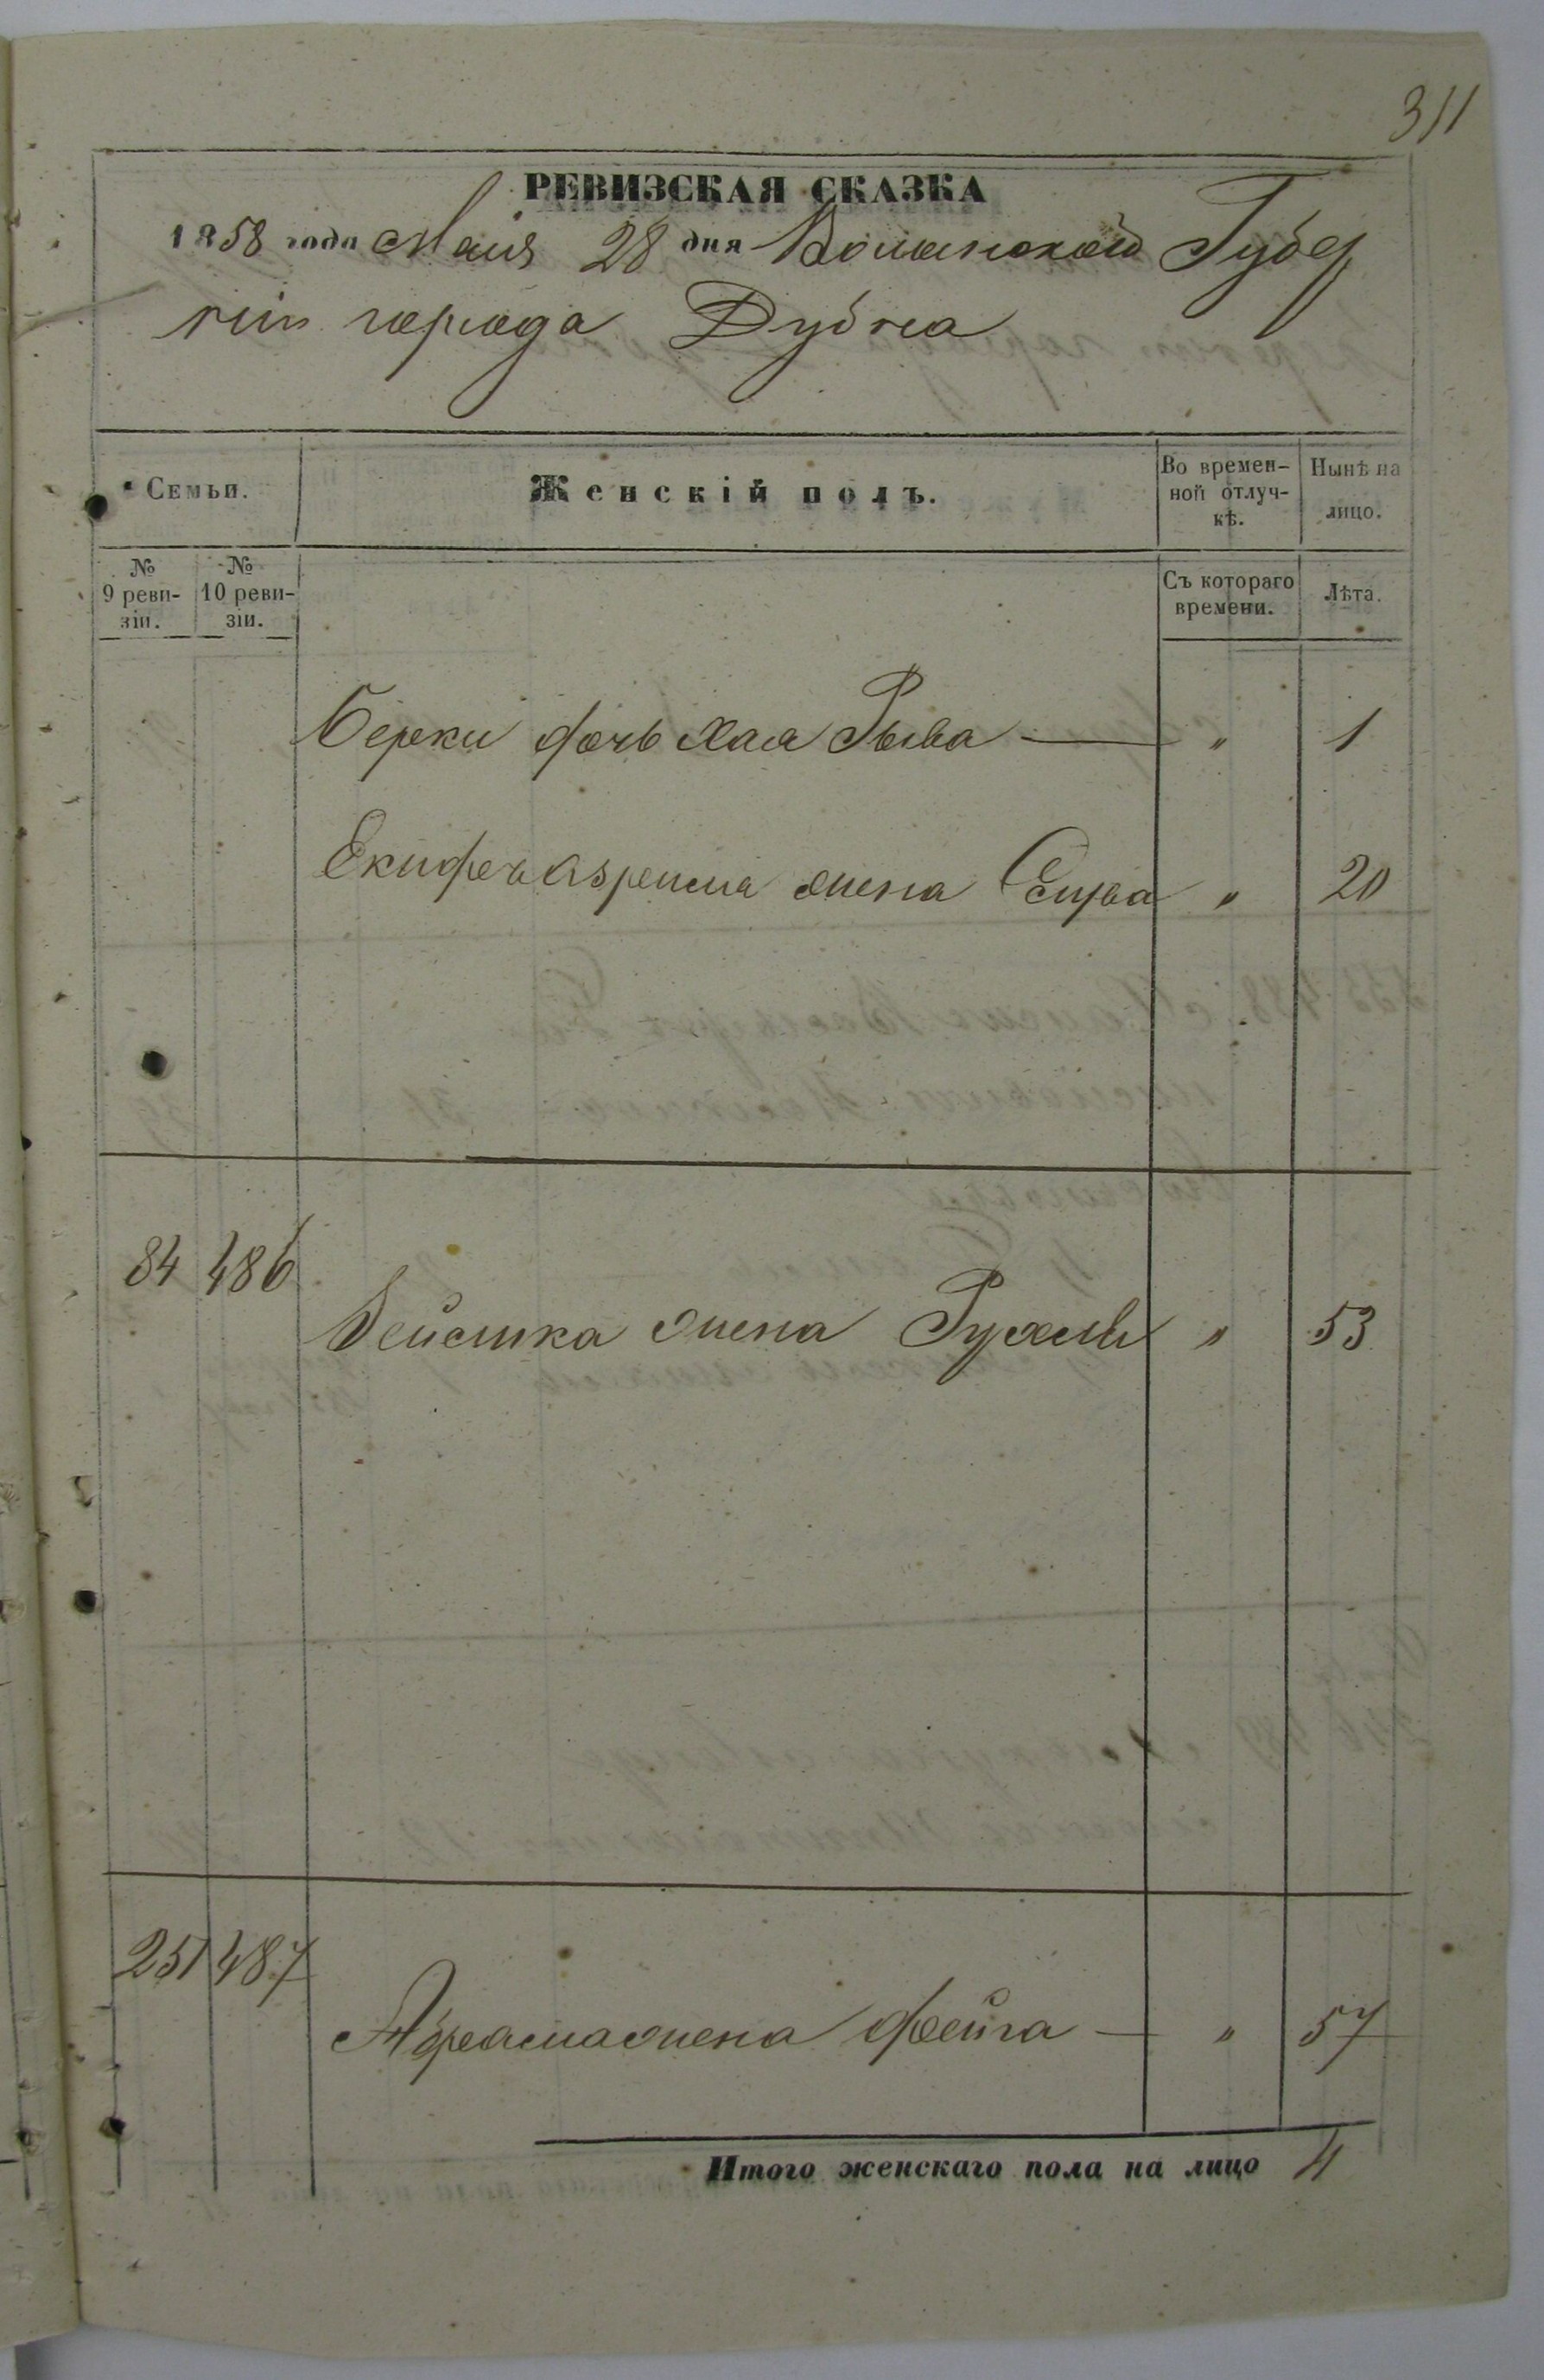 311
РЕВИЗСКАЯ СКАЗКА
1858 года Маія 28 дня Волынской Губер
ніи города Дубна
Семьи.
Женскій полъ.
Во времен-
ной отлуч-
кѣ.
Нынѣ на
лицо.
№
9 реви-
зіи.
№
10 реви-
зіи.
Съ котораго
времени.
Лѣта.
Берки дочь Хая Рыва — " 1
жена " 20
84 486
жена Рухля " 53
251 487
Абрама жена Фейга — " 57
Итого женскаго пола на лицо 4